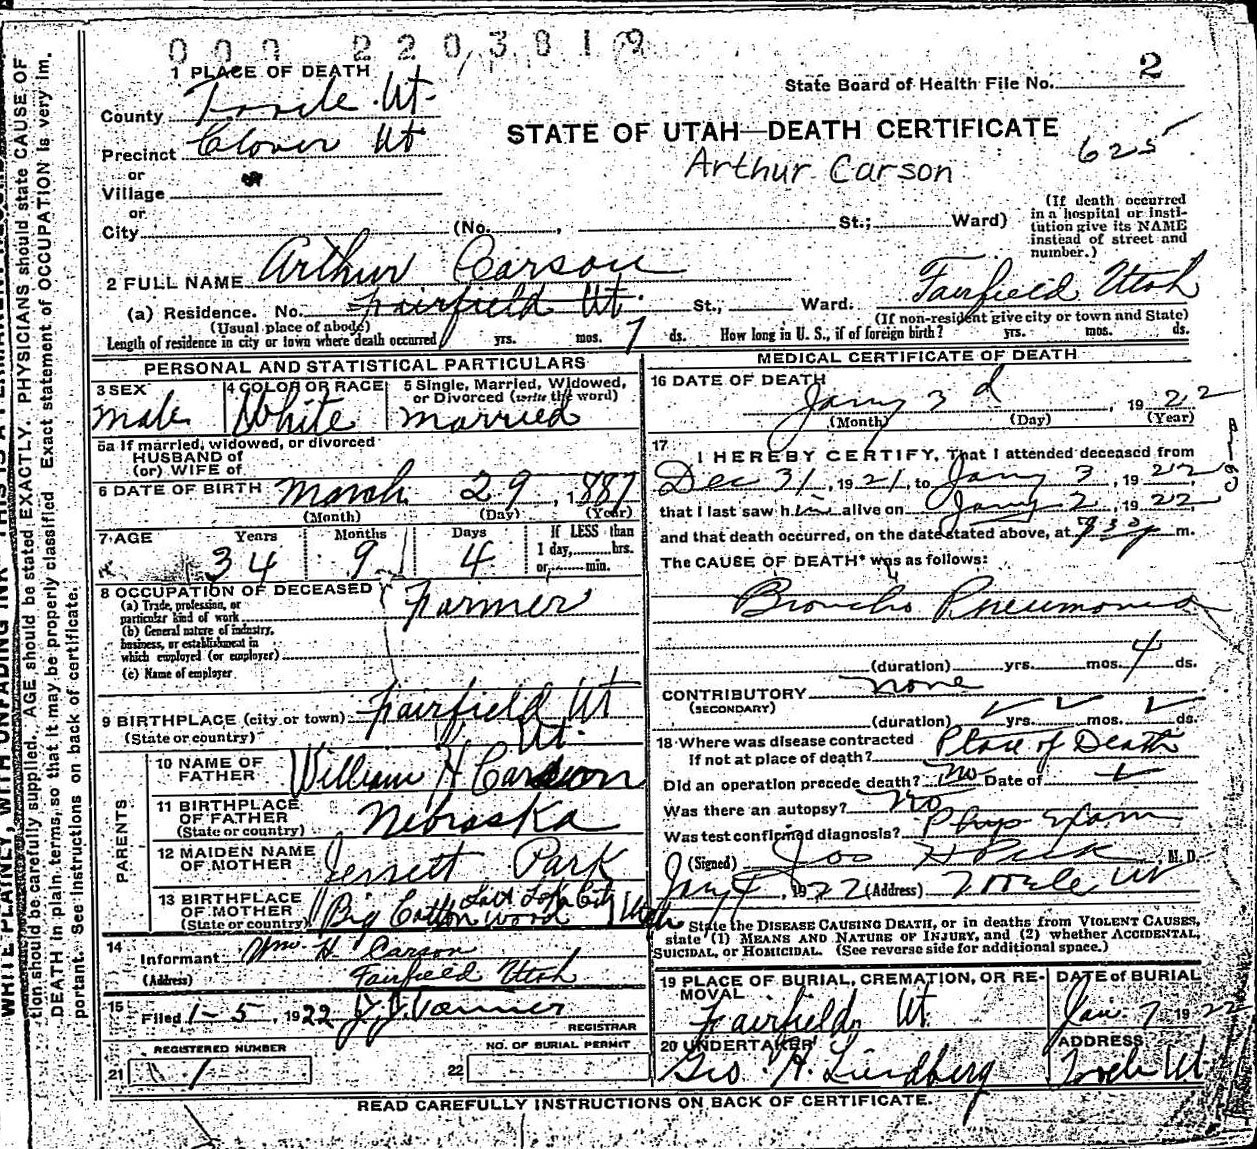 000 2203819
1 PLACE OF DEATH
State Board of Health File No. 2
County Tooele Ut.
Precinct Clover Ut
or
Village
or
City (No. , St.; Ward)
STATE OF UTAH—DEATH CERTIFICATE
Arthur Carson
625
(If death occurred in a hospital or insti-
tution give its NAME
instead of street and
number.)
2 FULL NAME Arthur Carson
(a) Residence. No. Fairfield Ut. St., Ward. Fairfield Utah
(Usual place of abode) (If non-resident give city or town and State)
Length of residence in city or town where death occurred yrs. mos. 7 ds. How long in U. S., if of foreign birth? yrs. mos. ds.
PERSONAL AND STATISTICAL PARTICULARS
3 SEX Male
4 COLOR OR RACE White
5 Single, Married, Widowed,
or Divorced (write the word)
Married
5a If married, widowed, or divorced
HUSBAND of
(or) WIFE of
6 DATE OF BIRTH March 29, 1887
(Month) (Day) (Year)
7 AGE Years 34 Months 9 Days 4 If LESS than
1 day, hrs.
or min.
8 OCCUPATION OF DECEASED
(a) Trade, profession, or
particular kind of work Farmer
(b) General nature of industry,
business, or establishment in
which employed (or employer)
(c) Name of employer
9 BIRTHPLACE (city or town) Fairfield Ut
(State or country) Ut.
PARENTS
10 NAME OF
FATHER William H Carson
11 BIRTHPLACE
OF FATHER
(State or country) Nebraska
12 MAIDEN NAME
OF MOTHER Park
13 BIRTHPLACE
OF MOTHER
(State or country) Big Cottonwood Salt Lake City Utah
14
Informant Wm. H. Carson
(Address) Fairfield Utah
15
Filed 1-5, 1922
REGISTRAR
REGISTERED NUMBER
21 1
NO. OF BURIAL PERMIT
22
MEDICAL CERTIFICATE OF DEATH
16 DATE OF DEATH
Jany 3d, 1922
(Month) (Day) (Year)
17
I HEREBY CERTIFY, That I attended deceased from
Dec 31, 1921, to Jany 3, 1922
that I last saw him alive on Jany 2, 1922
and that death occurred, on the date stated above, at m.
The CAUSE OF DEATH* was as follows:
Broncho Pneumonia
(duration) yrs. mos. 4 ds.
CONTRIBUTORY none
(SECONDARY)
(duration) yrs. mos. ds.
18 Where was disease contracted
If not at place of death? Place of Death
Did an operation precede death? No Date of
Was there an autopsy? No
Was test confirmed diagnosis? Phys Exam
(Signed) Jos H Peck, M. D.
Jany 4, 1922 (Address) Tooele Ut
State the DISEASE CAUSING DEATH, or in deaths from VIOLENT CAUSES,
state (1) MEANS AND NATURE OF INJURY, and (2) whether ACCIDENTAL,
SUICIDAL, or HOMICIDAL. (See reverse side for additional space.)
19 PLACE OF BURIAL, CREMATION, OR RE-
MOVAL
Fairfield, Ut.
DATE of BURIAL
Jan. 7 1922
20 UNDERTAKER
Geo. H. Lindberg
ADDRESS
Tooele Ut.
READ CAREFULLY INSTRUCTIONS ON BACK OF CERTIFICATE.
WRITE PLAINLY, WITH UNFADING INK—THIS IS A PERMANENT
tion should be carefully supplied. AGE should be stated EXACTLY. PHYSICIANS should state CAUSE OF
DEATH in plain terms, so that it may be properly classified. Exact statement of OCCUPATION is very im-
portant. See instructions on back of certificate.